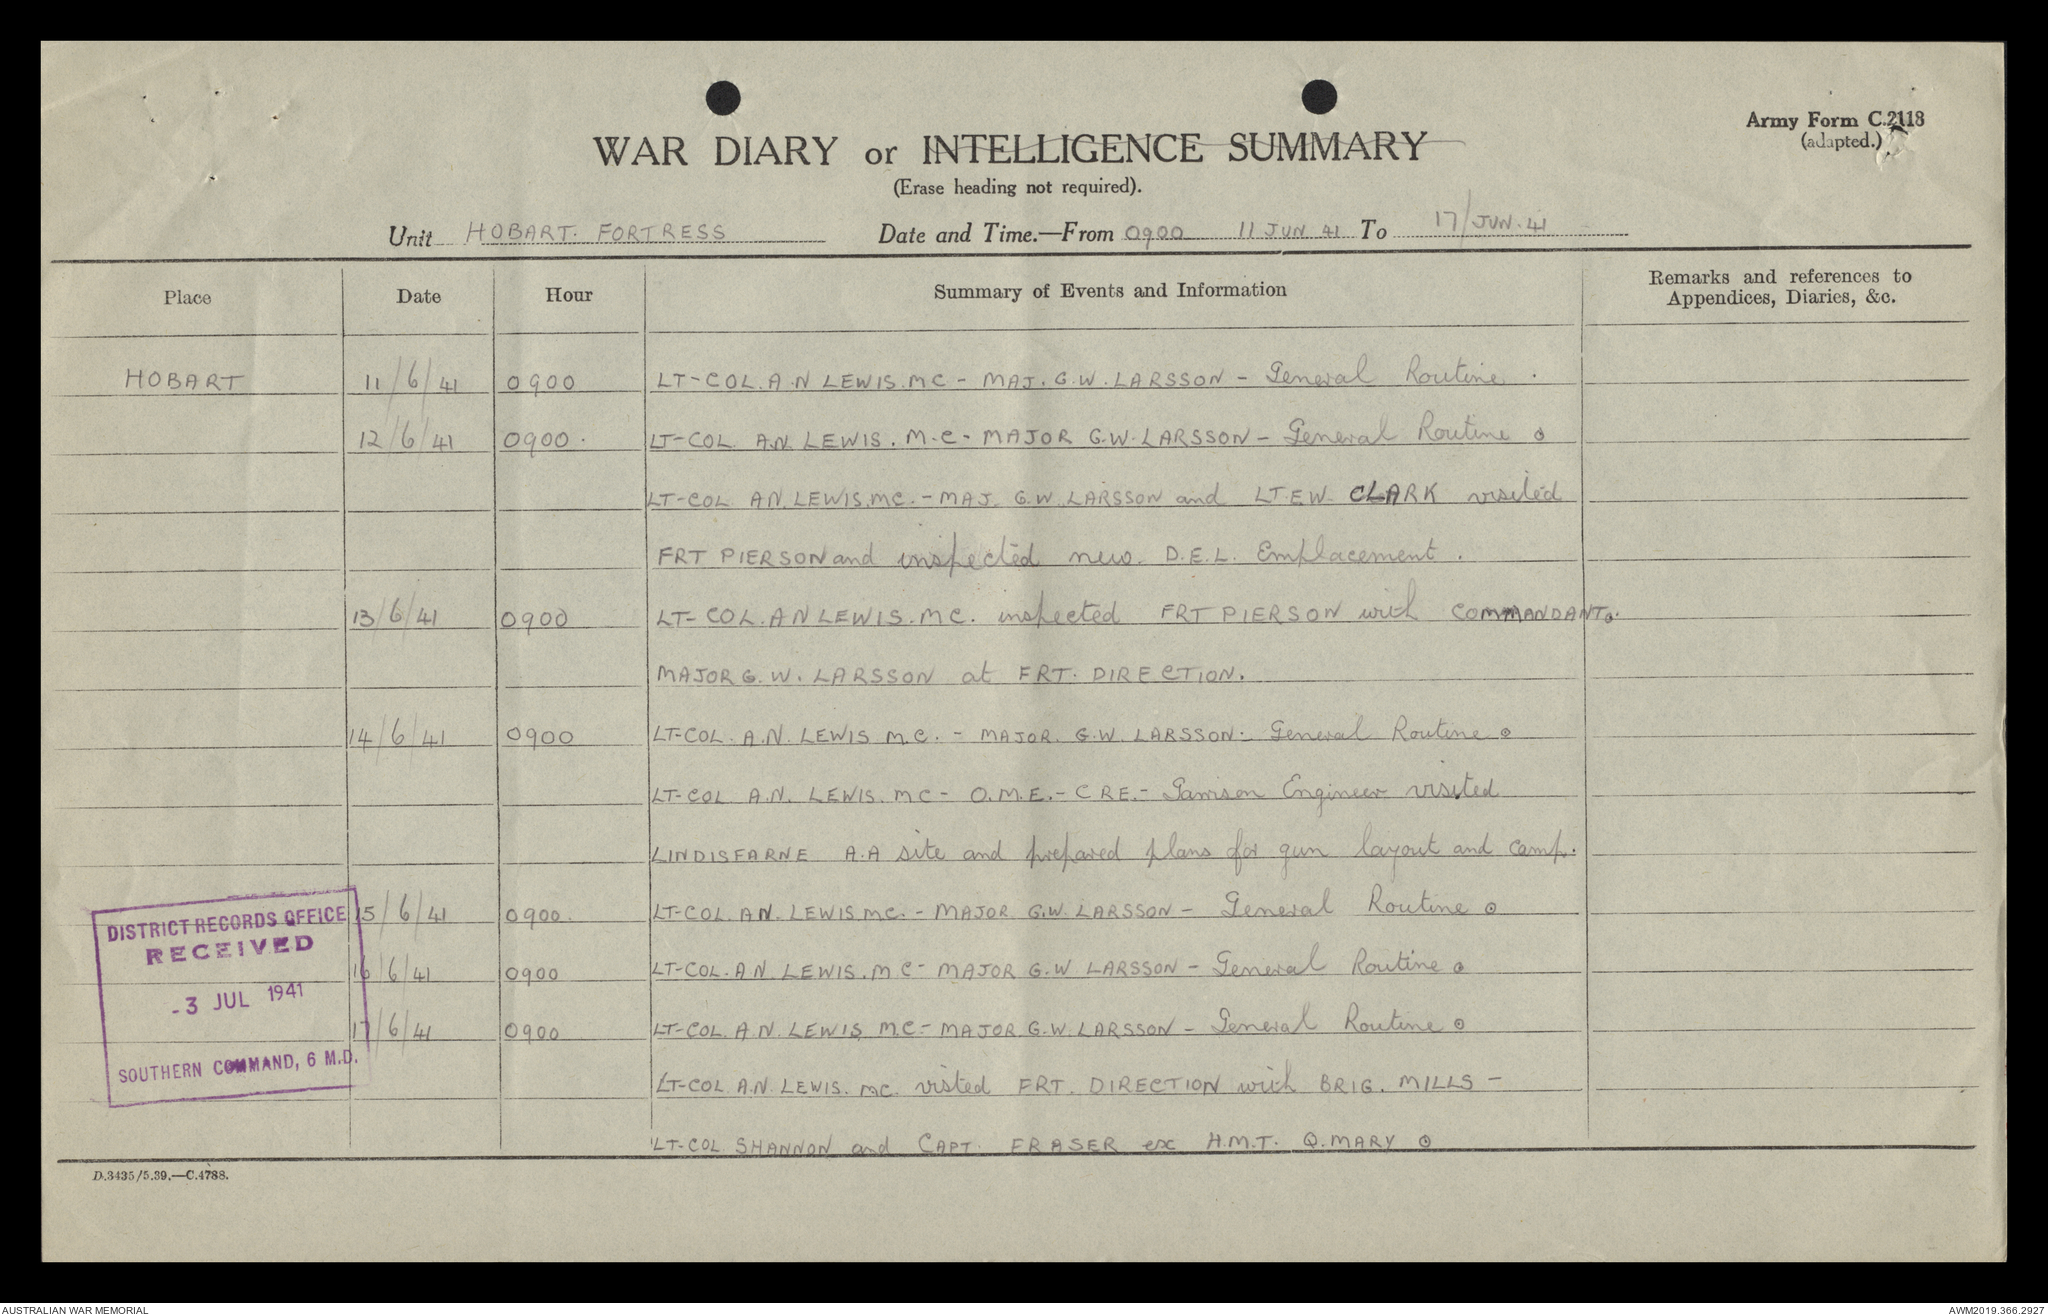 Army Form C.2118
(adapted.)
WAR DIARY or INTELLIGENCE SUMMARY
(Erase heading not required).
Unit HOBART. FORTRESS Date and Time.—From 0900 11 JUN 41 To 17/JUN.41
Place Date Hour Summary of Events and Information Remarks and references to
Appendices, Diaries, &c.
HOBART 11/6/41 0900 LT-COL. A.N LEWIS. MC - MAJ. G.W. LARSSON - General Routine.
12/6/41 0900. LT-COL. A.N. LEWIS. M.C - MAJOR G.W. LARSSON - General Routine.
LT-COL A.N. LEWIS. MC. - MAJ. G.W. LARSSON and LT. E.W. CLARK visited
FRT PIERSON and inspected new D.E.L. Emplacement.
13/6/41 0900 LT-COL. A N LEWIS. MC. inspected FRT PIERSON with COMMANDANT.
MAJOR G.W. LARSSON at FRT. DIRECTION.
14/6/41 0900 LT-COL. A.N. LEWIS M.C. - MAJOR. G.W. LARSSON - General Routine.
LT-COL A.N. LEWIS. MC - O.M.E. - CRE. - Garrison Engineer visited
LINDISFARNE A.A site and prepared plans for gun layout and camp.
15/6/41 0900. LT-COL. A.N. LEWIS MC. - MAJOR G.W. LARSSON - General Routine.
16/6/41 0900 LT-COL. A.N. LEWIS. MC - MAJOR G.W LARSSON - General Routine.
17/6/41 0900 LT-COL. A.N. LEWIS MC - MAJOR G.W. LARSSON - General Routine.
LT-COL A.N. LEWIS. MC. visted FRT. DIRECTION with BRIG. MILLS -
LT-COL SHANNON and CAPT. FRASER ex H.M.T. Q.MARY.
DISTRICT RECORDS OFFICE
RECEIVED
-3 JUL 1941
SOUTHERN COMMAND, 6 M.D.
D.3435/5.39.—C.4788.
AUSTRALIAN WAR MEMORIAL AWM2019.366.2927